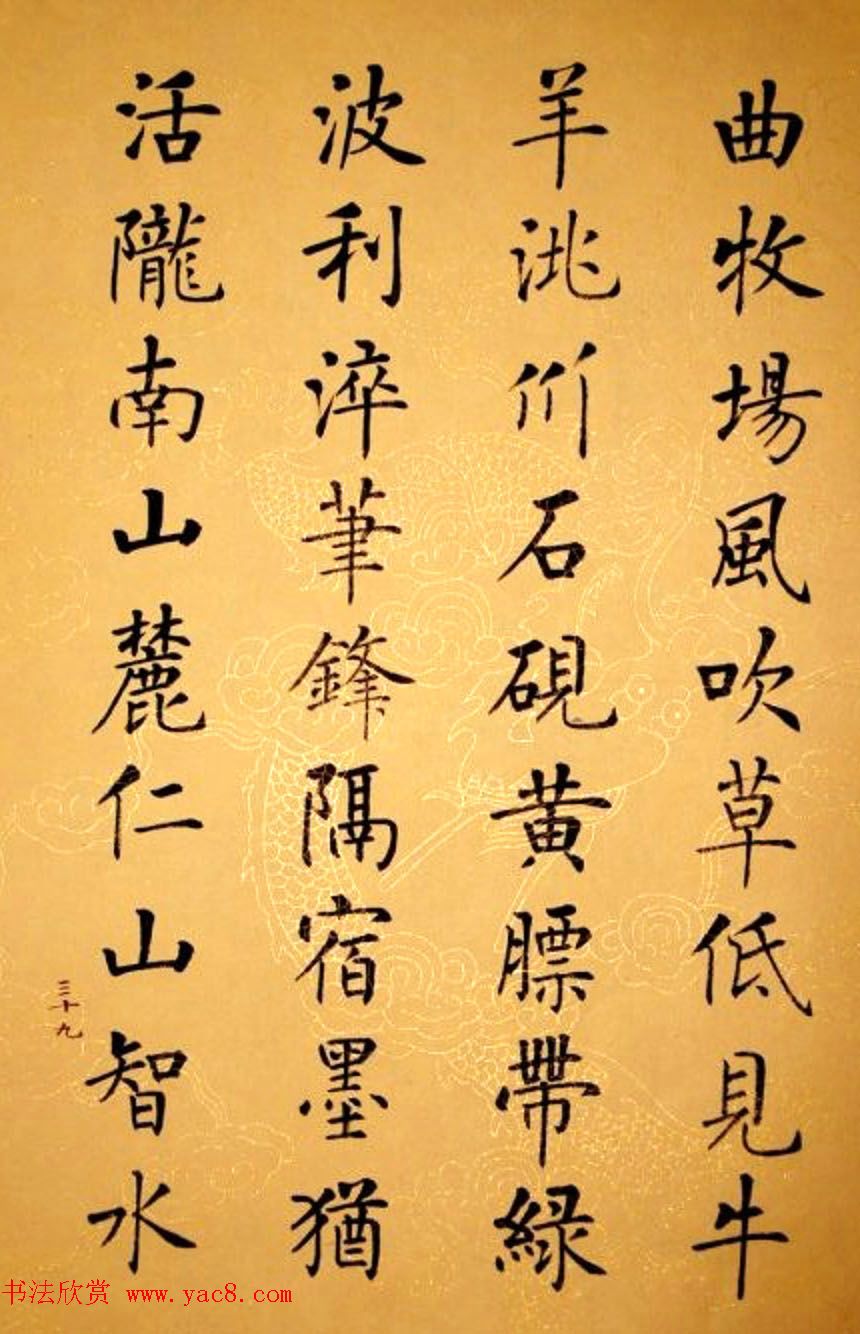 曲牧場風吹草低見牛
羊洮川石硯黃膘帶綠
波利淬筆鋒隔宿墨猶
活隴南山麓仁山智水
三十九
书法欣赏 www.yac8.com